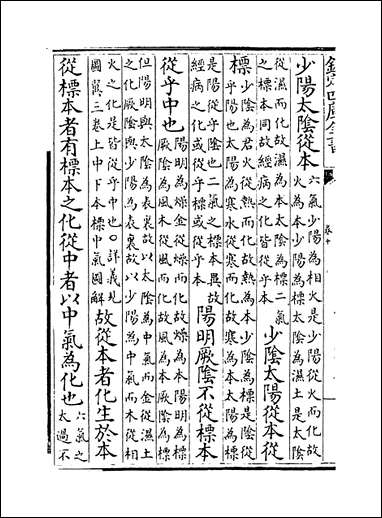 欽定四庫全書 卷十
少陽太陰從本
六氣少陽為相火是少陽從火而化故
火為本少陽為標太陰為濕土是太陰
從濕而化故濕為本太陰為標二氣
之標本同故經病之化皆從乎本
少陰太陽從本從
標
少陰為君火從熱而化故熱為本少陰為標是陰從
乎陽也太陽為寒水從寒而化故寒為本太陽為標
是陽從乎陰也二氣之標本異故
經病之化或從乎標或從乎本
陽明厥陰不從標本
從乎中也
陽明為燥金從燥而化故燥為本陽明為標
厥陰為風木從風而化故風為本厥陰為標
但陽明與太陰為表裏故以太陰為中氣而金從濕土
之化厥陰與少陽為表裏故以少陽為中氣而木從相
火之化是皆從乎中也○詳義見
圖翼三卷上中下本標中氣圖解
故從本者化生於本
從標本者有標本之化從中者以中氣為化也
六氣之
太過不